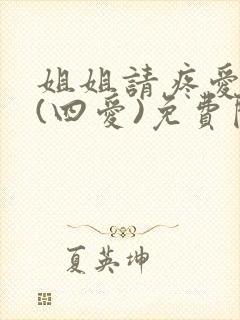 姐姐請疼愛
(四愛)免費
夏英坤